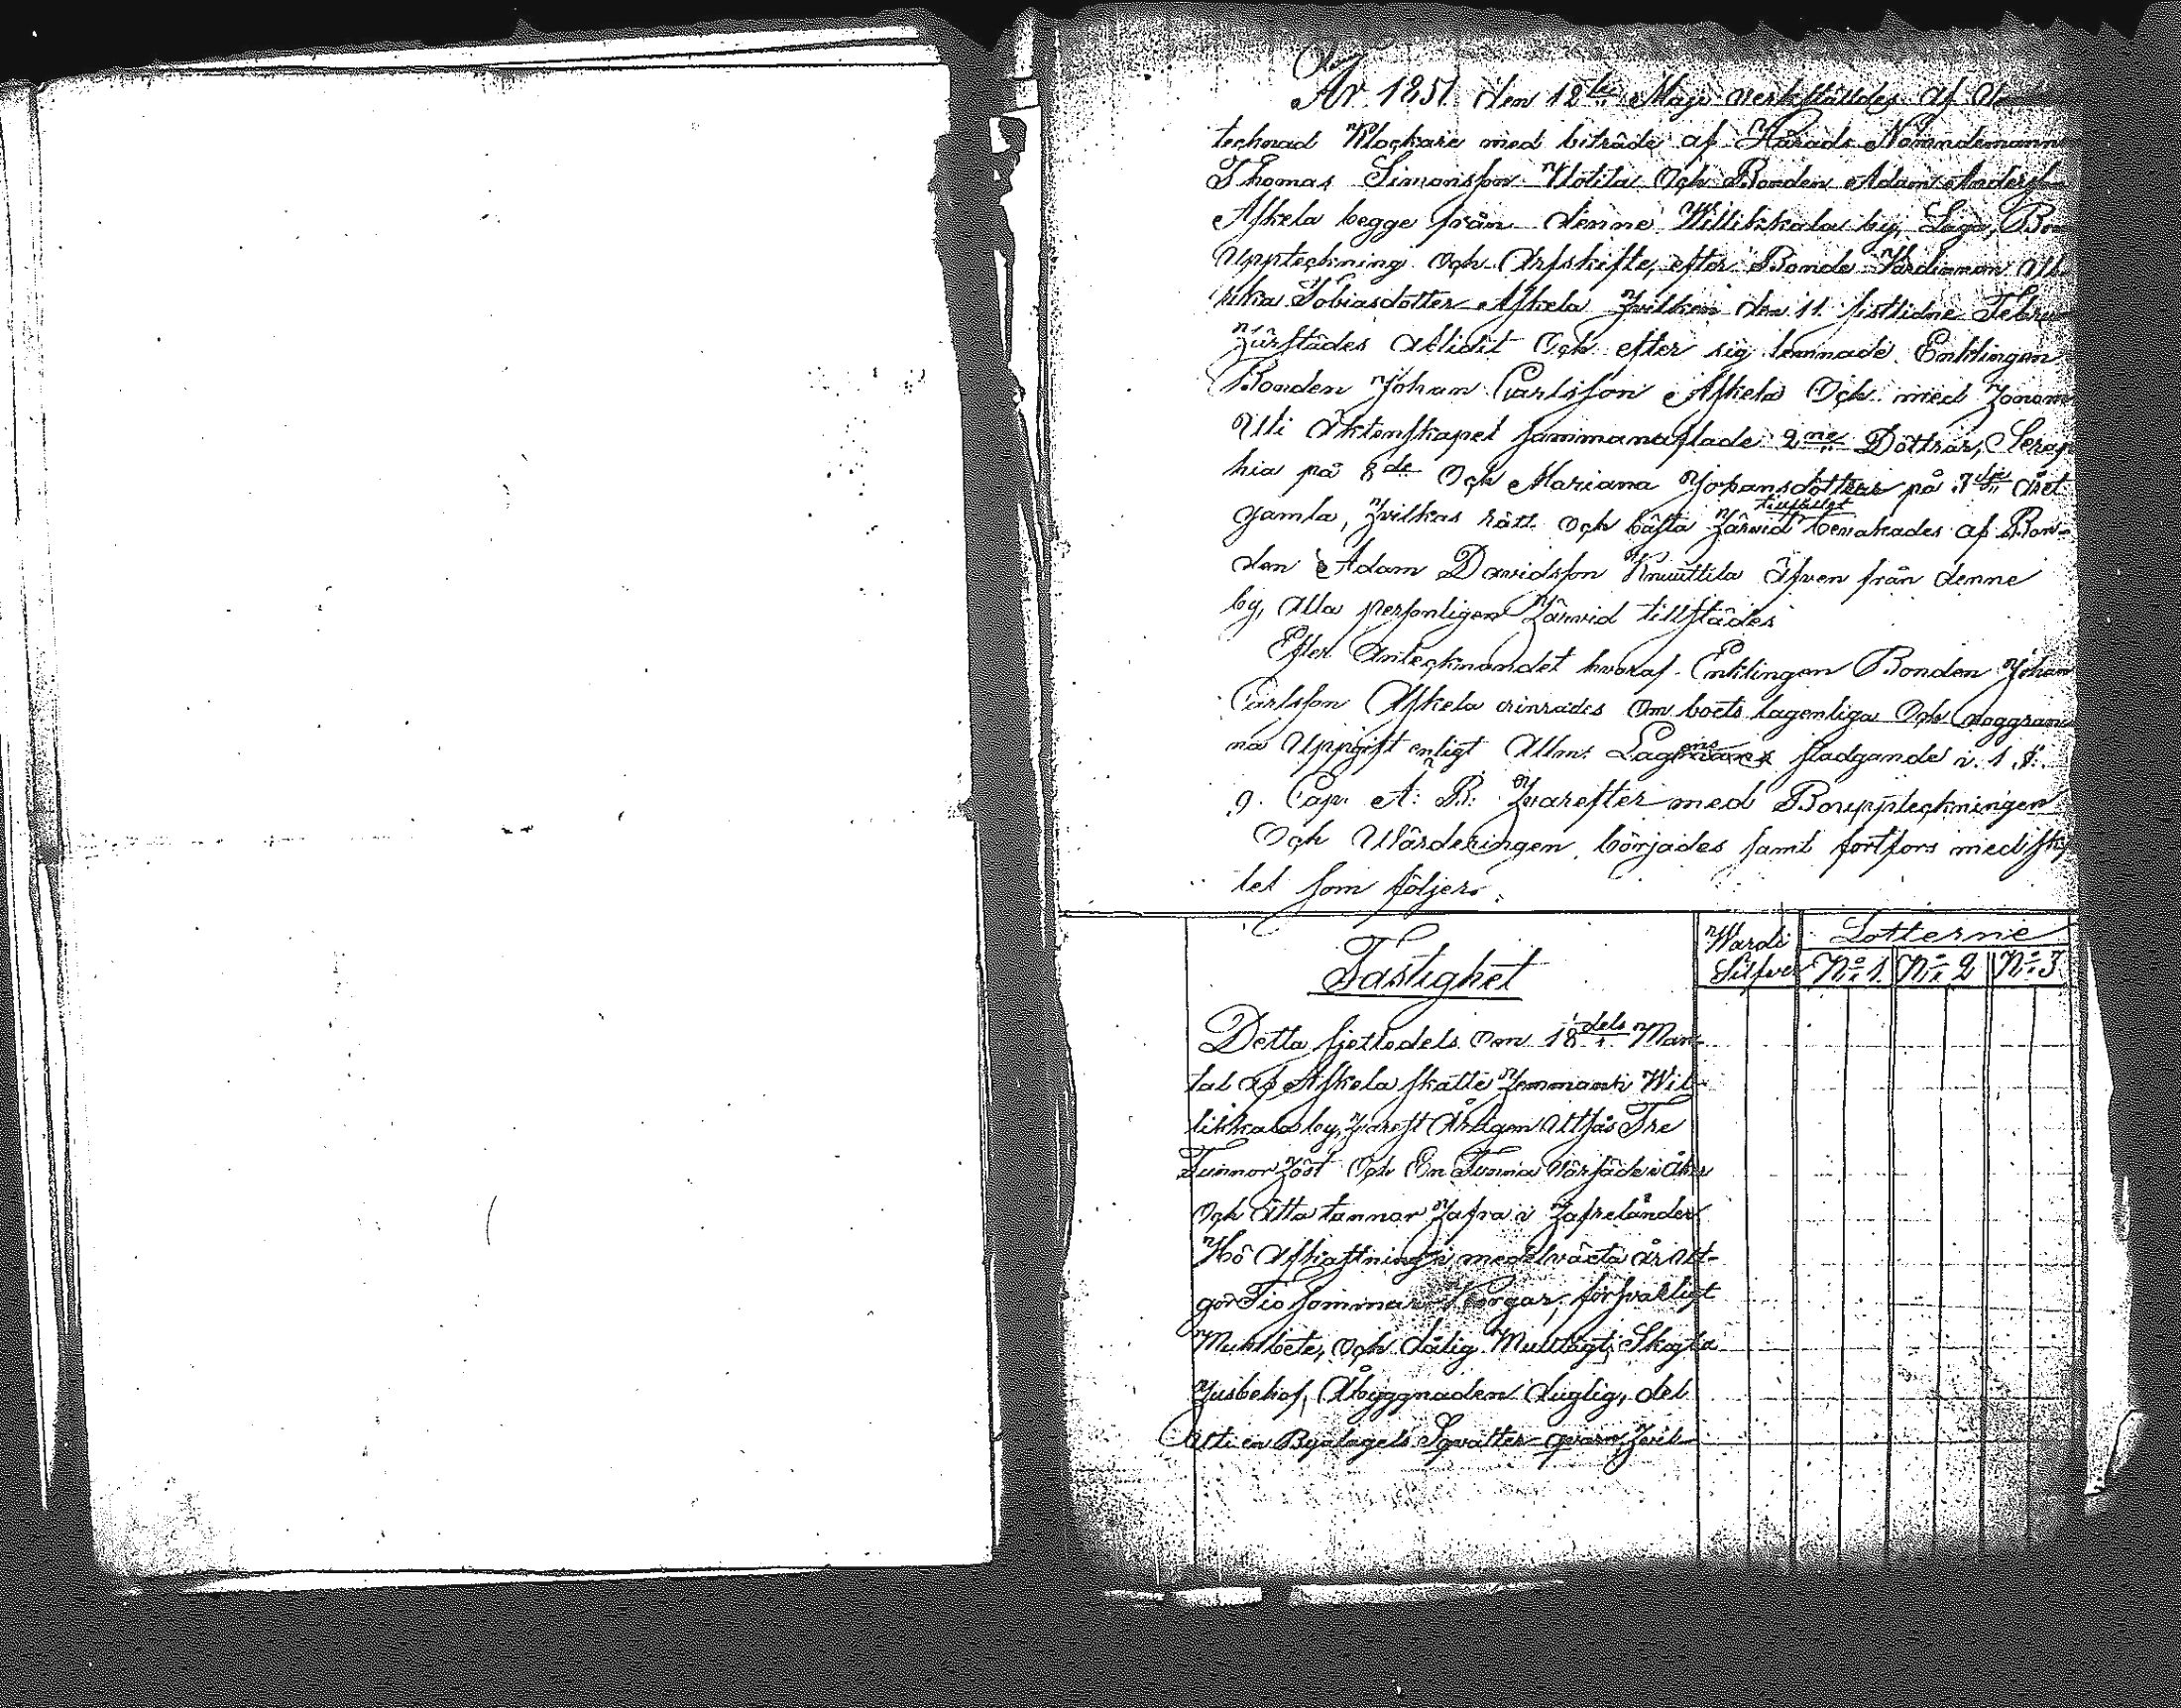 År 1851 den 12te Maji verkställdes af
tecknad Klockare med biträde af Härads Nämndemann
Thomas Simonsson Uotila Och Bonden Adam Andersson
Askela begge från denne Willikkala by, Laga, Bou
Uppteckning och Arfskifte, efter Bonde Värdinnan Ul
rika Tobiasdotter Askela hvilken den 11 sistlidne Febru
härstädes Aflidit Och efter sig lemnade Enklingen
Bonden Johan Carlsson Askela Och med honom
Uti Äktenskapet sammanaflade 2ne Döttrar, Serap
hia på 8de Och Mariana Johansdotter på 3dje Året
tillfälligt
gamla, hvilkas rätt och bästa härvid bevakades af Bon-
den Adam Davidsson Knuuttila Äfven från denne
by, Alla personligen härvid tillstädes
Efter Antecknandet hvaraf Enklingen Bonden Johan
Carlsson Askela erinrades Om boets lagenliga Och noggran
na Uppgift enligt Allm: Lagens stadgande i 1 §:
9. Cap. Ä: B: hvarefter med Bouppteckningen
Och Värderingen börjades samt fortfors med skif
tet som följer:
Fastighet
Värdi Silfver
Lotterne
No 1. No 2 No 3
Detta sjettedels Om 18dels Man-
tal af Askela skatte hemman i Wil-
likkala by, hvarest Årligen Utsås Tre
Tunnor höst Och En Tunna Vårsäde i Åker
Och Åtta tunnor hafra i hafreländer
Hö Afkastning i medelväxta år Ut-
gör Tio sommar Korgar, försvarligt
Muhlbete, och dålig Skogta
husbehof, Åbyggnaden duglig, del
Uti en Byalagets Sqvalter qvarn, hvil-